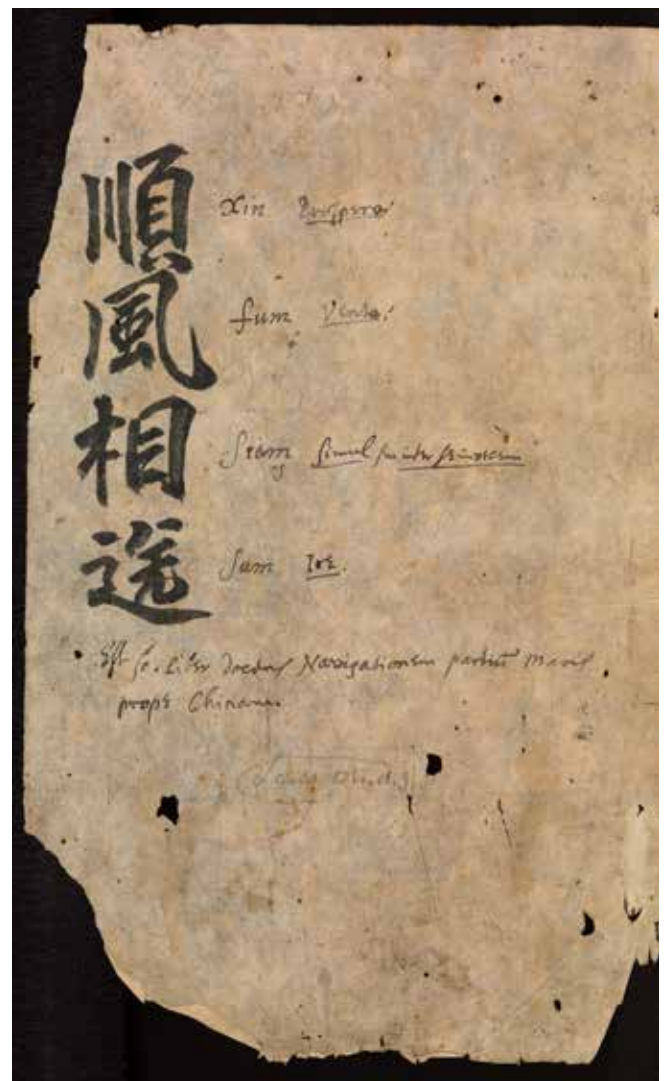 順風相送
Xin prospero
fum vento.
Siam simul seu inter se invicem
Sum Ire.
Est sc. Liber docens Navigationem partiū Maris
prope Chinam.